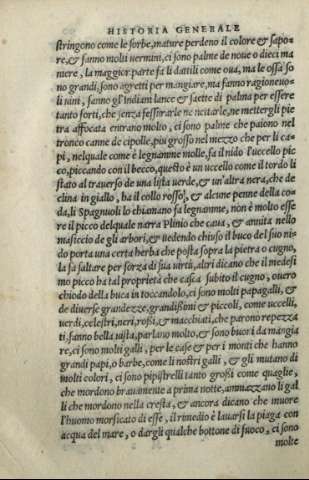 HISTORIA GENERALE
stringono come le sorbe, mature perdeno il colore & sapo-
re, & fanno molti vermini, ci sono palme de noue o dieci ma
niere, la maggior parte fa li dattili come oua, ma le ossa so
no grandi, sono agretti per mangiare, ma fanno ragioneuo-
li uini, fanno gl'Indiani lance & saette di palma per essere
tanto forti, che senza fessurarle ne incitarle, ne mettergli pie
tra affocata entrano molto, ci sono palme che paiono nel
tronco canne de cipolle, piu grosso nel mezzo che per li ca-
pi, nelquale come è legnamme molle, fa il nido l'uccello pic
co, piccando con il becco, questo è un uccello come il tordo li
stato al trauerso de una lista uerde, & un'altra nera, che de
clina in giallo, ha il collo rosso, & alcune penne della co-
da, li Spagnuoli lo chiamano falegnamme, non è molto esse
re il picco delquale narra Plinio che caua, & annita nello
masiccio de gli arbori, & uedendo chiuso il buco del suo ni-
do porta una certa herba che posta sopra la pietra o cugno,
la fa saltare per forza di sua uirtù, altri dicano che il medesi
mo picco ha tal proprietà che casca subito il cugno, ouero
chiodo della buca in toccandolo, ci sono molti papagalli, &
de diuerse grandezze, grandissimi & piccoli, come uccelli,
uerdi, celestri, neri, rossi, & macchiati, che parono repezza
ti, fanno bella uista, parlano molto, & sono buoni da mangia
re, ci sono molti galli, per le case & per i monti che hanno
grandi papi, o barbe, come li nostri galli, & gli mutano di
molti colori, ci sono pipistrelli tanto grossi come quaglie,
che mordono brauamente a prima notte, ammazzano li gal
li che mordono nella cresta, & ancora dicano che muore
l'huomo morsicato di esse, il rimedio è lauarsi la piaga con
acqua del mare, o dargli qualche bottone di fuoco, ci sono
molte